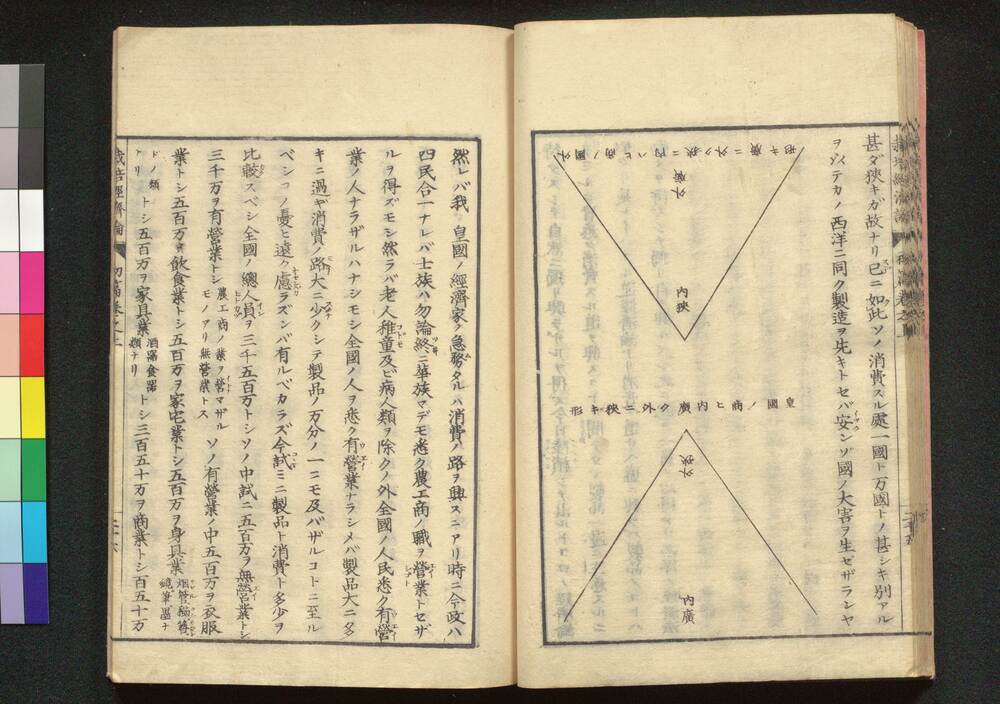 甚ダ狹キガ故ナリ已ニ如此ソノ消費スル處一國ト万國トノ甚シキ別アル
ヲヅイテカノ西洋ニ同ク製造ヲ先キトセバ安ンゾ國ノ大害ヲ生セザランヤ
外國ノ商ヒハ内ニ狹ク外ニ廣キ形
外廣
内狹
皇國ノ商ヒ内廣ク外ニ狹キ形
外狹
内廣
栽培經濟論
初篇卷之二
二十五
然レバ我 皇國ノ經濟家ノ急務タルハ消費ノ路ヲ興スニアリ時ニ今政ハ
四民合一ナレバ士族ハ勿論終ニ華族マデモ悉ク農工商ノ職ヲ營業トセザ
ルヲ得ズモシ然ラバ老人稚童及ビ病人類ヲ除クノ外全國ノ人民悉ク有營
業ノ人ナラザルハナシモシ全國ノ人ヲ悉ク有營業ナラシメバ製品大ニ多
キニ過ギ消費ノ路大ニ少クシテ製品ノ万分ノ一ニモ及バザルコトニ至ル
ベシコノ憂ヒ遠ク慮ラズンバ有ルベカラズ今試ミニ製品ト消費ト多少ヲ
比較スベシ全國ノ總人員ヲ三千五百万トシソノ中試ニ五百万ヲ無營業トシ
三千万ヲ有營業トシ農工商ノ業ヲ營マザルモノアリ無營業トスソノ有營業ノ中五百万ヲ衣服
業トシ五百万ヲ飲食業トシ五百万ヲ家宅業トシ五百万ヲ身具業烟管鏡筆墨ナ
ドノ類ナリトシ五百万ヲ家具業酒器食器類ナリトシ三百五十万ヲ商業トシ百五十万
栽培經濟論
初篇卷之二
二十六